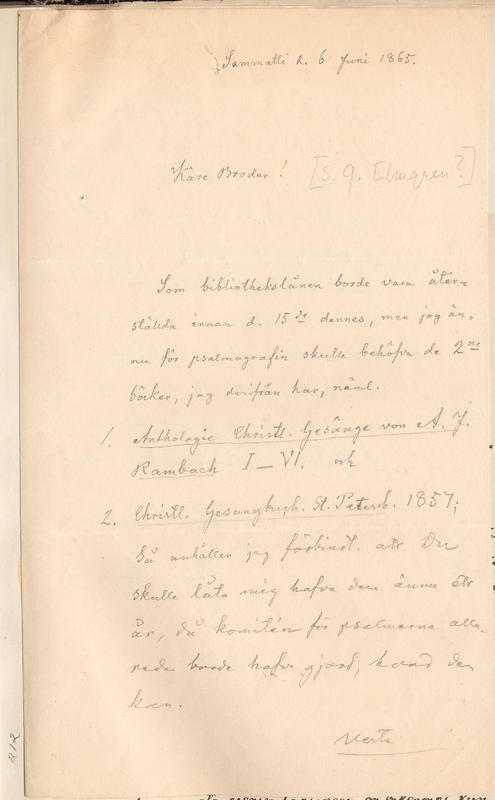 Sammatti d. 6 Juni 1865.
Käre Broder! [S. G. Elmgren?]
Som bibliothekslånen borde vara åter-
ställda innan d. 15 de dennes, men jag än-
nu för psalmografin skulle behöfva de 2 ne
böcker, jag derifrån har, näml.
1. Anthologie Christl. Gesänge von A. J.
Rambach I–VI. och
2. Christl. Gesangbuch. St. Petersb. 1857;
Så anhåller jag förbindl. att Du
skulle låta mig hafva dem ännu ett
år, då komitén för psalmerna alla-
redan borde hafva gjord, hvad den
kan.
212